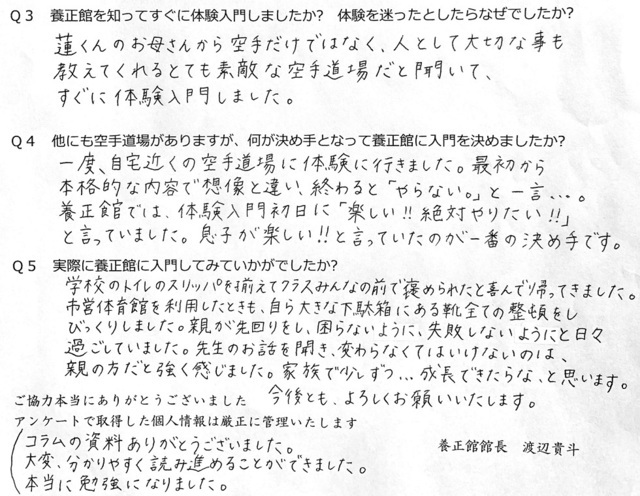 Q３　養正館を知ってすぐに体験入門しましたか?　体験を迷ったとしたらなぜでしたか?
蓮くんのお母さんから空手だけではなく、人として大切な事も
教えてくれるとても素敵な空手道場だと聞いて、
すぐに体験入門しました。
Q４　他にも空手道場がありますが、何が決め手となって養正館に入門を決めましたか?
一度、自宅近くの空手道場に体験に行きました。最初から
本格的な内容で想像と違い、終わると「やらない。」と一言…。
養正館では、体験入門初日に「楽しい!!絶対やりたい!!」
と言っていました。息子が楽しい!!と言っていたのが一番の決め手です。
Q５　実際に養正館に入門してみていかがでしたか?
学校のトイレのスリッパを揃えてクラスみんなの前で褒められたと喜んで帰ってきました。
市営体育館を利用したときも、自ら大きな下駄箱にある靴全ての整頓をし
びっくりしました。親が先回りをし、困らないように、失敗しないようにと日々
過ごしていました。先生のお話を聞き、変わらなくてはいけないのは、
親の方だと強く感じました。家族で少しずつ…成長できたらな、と思います。
ご協力本当にありがとうございました　今後とも、よろしくお願いいたします。
アンケートで取得した個人情報は厳正に管理いたします
コラムの資料ありがとうございました。
養正館館長　渡辺貴斗
大変、分かりやすく読み進めることができました。
本当に勉強になりました。